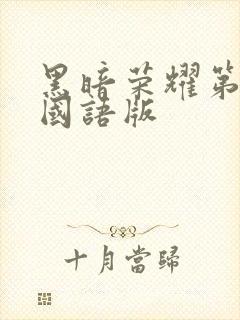 黑暗荣耀第
國語版
十月當歸